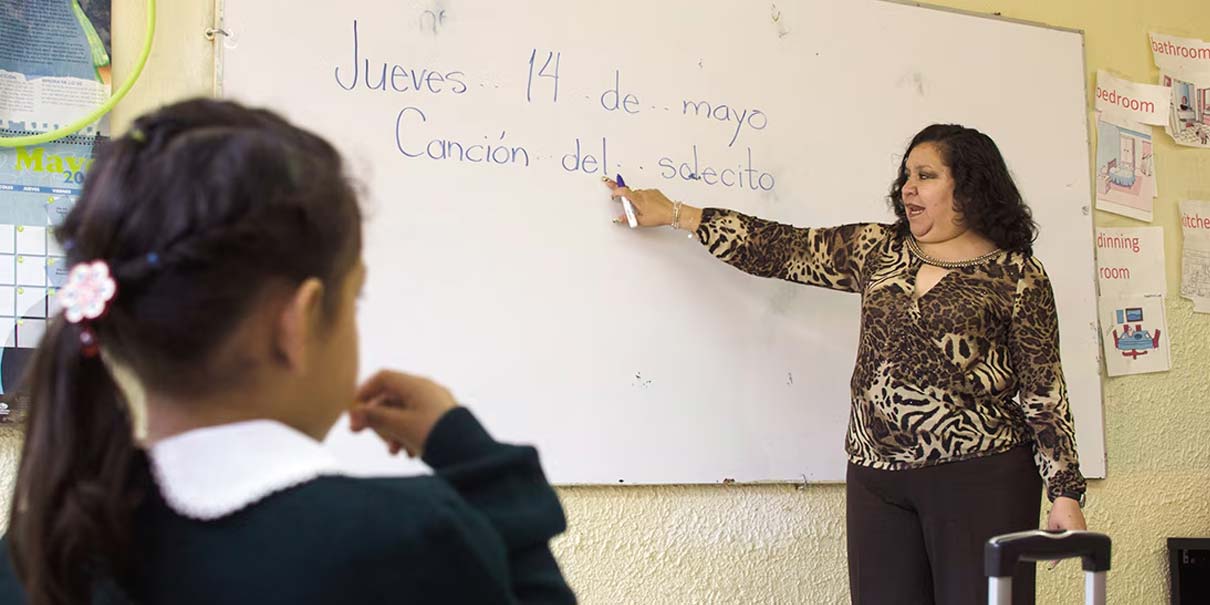 Jueves 14 de mayo
Canción del solecito
bathroom
bedroom
dinning
room